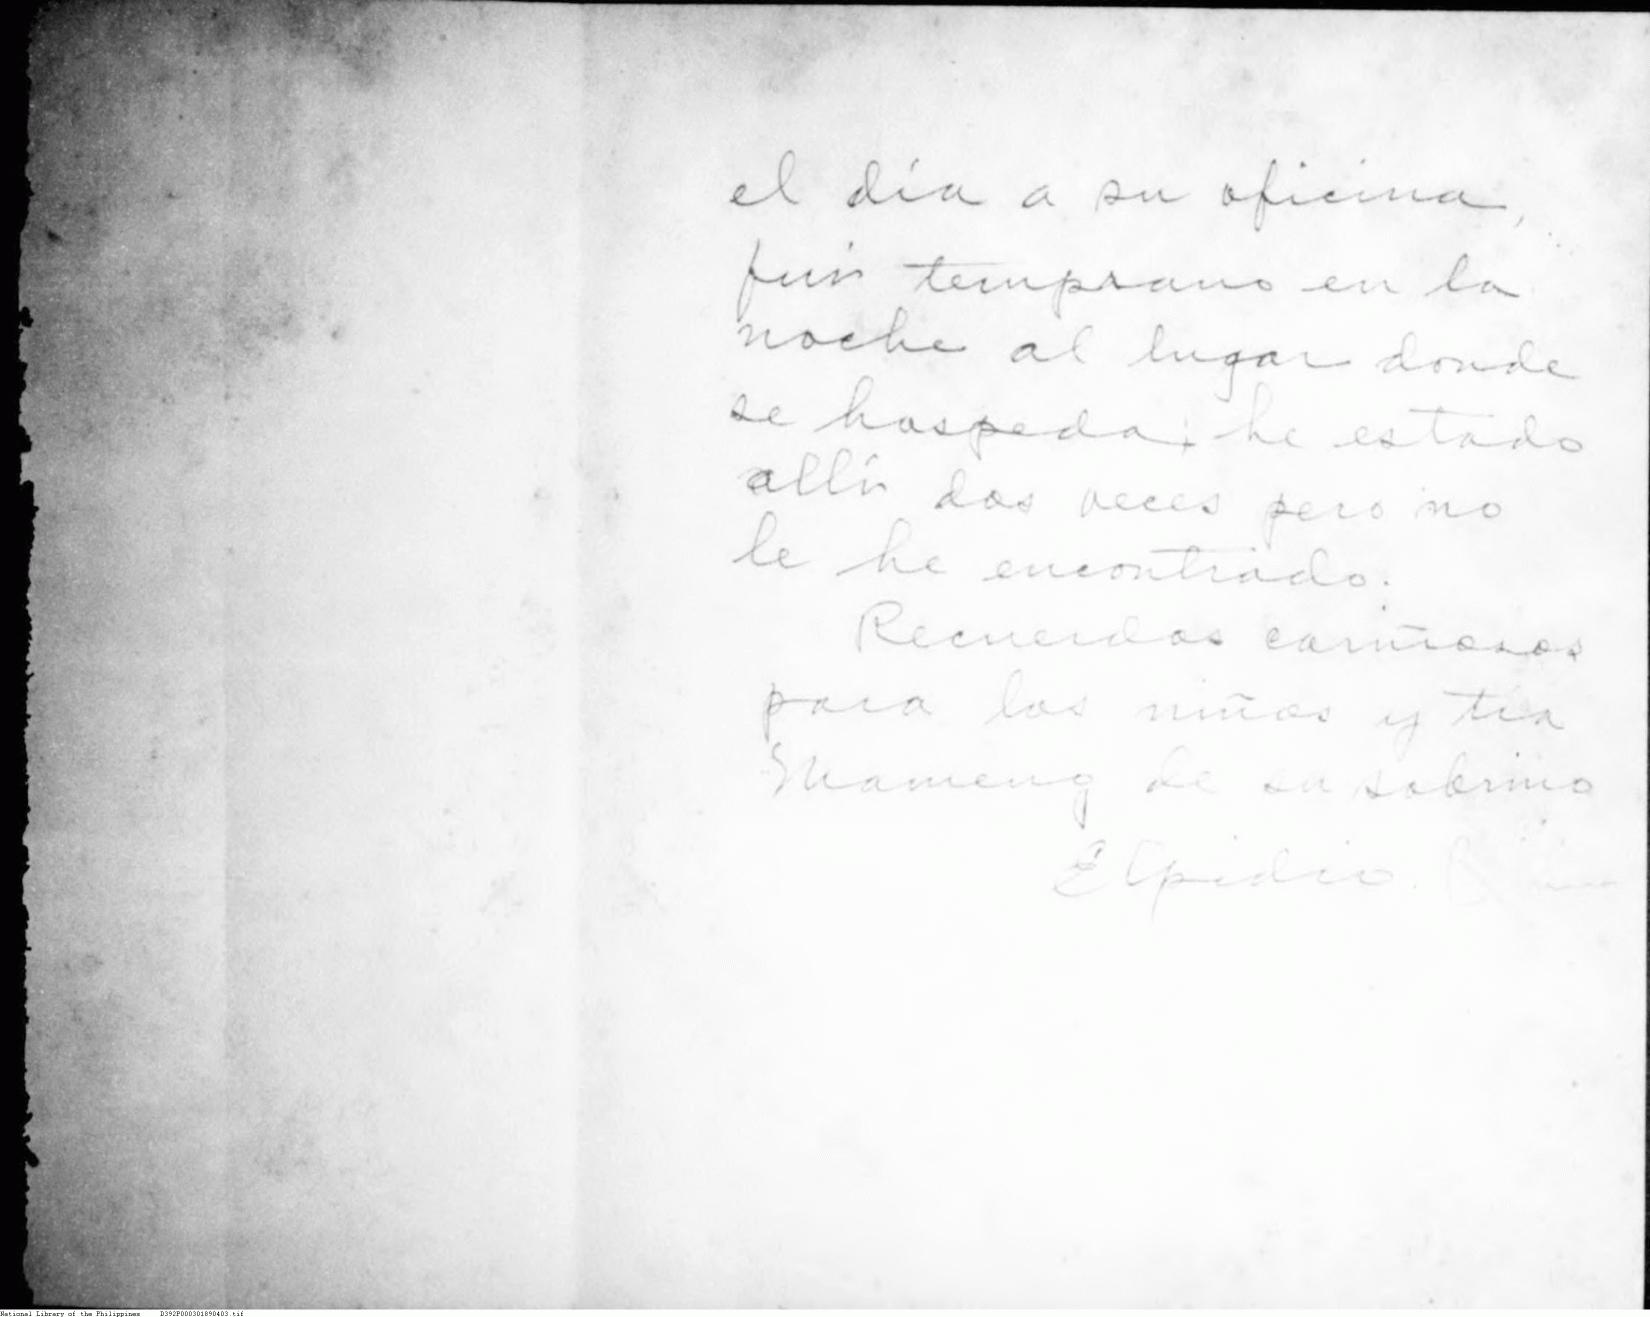 el día a su oficina,
fuí temprano en la
noche al lugar donde
se hospeda; he estado
allí dos veces pero no
le he encontrado.
Recuerdos cariñosos
para los niños y tía
Mameng de su sobrino
Elpidio
National Library of the Philippines D392P000301890403.tif